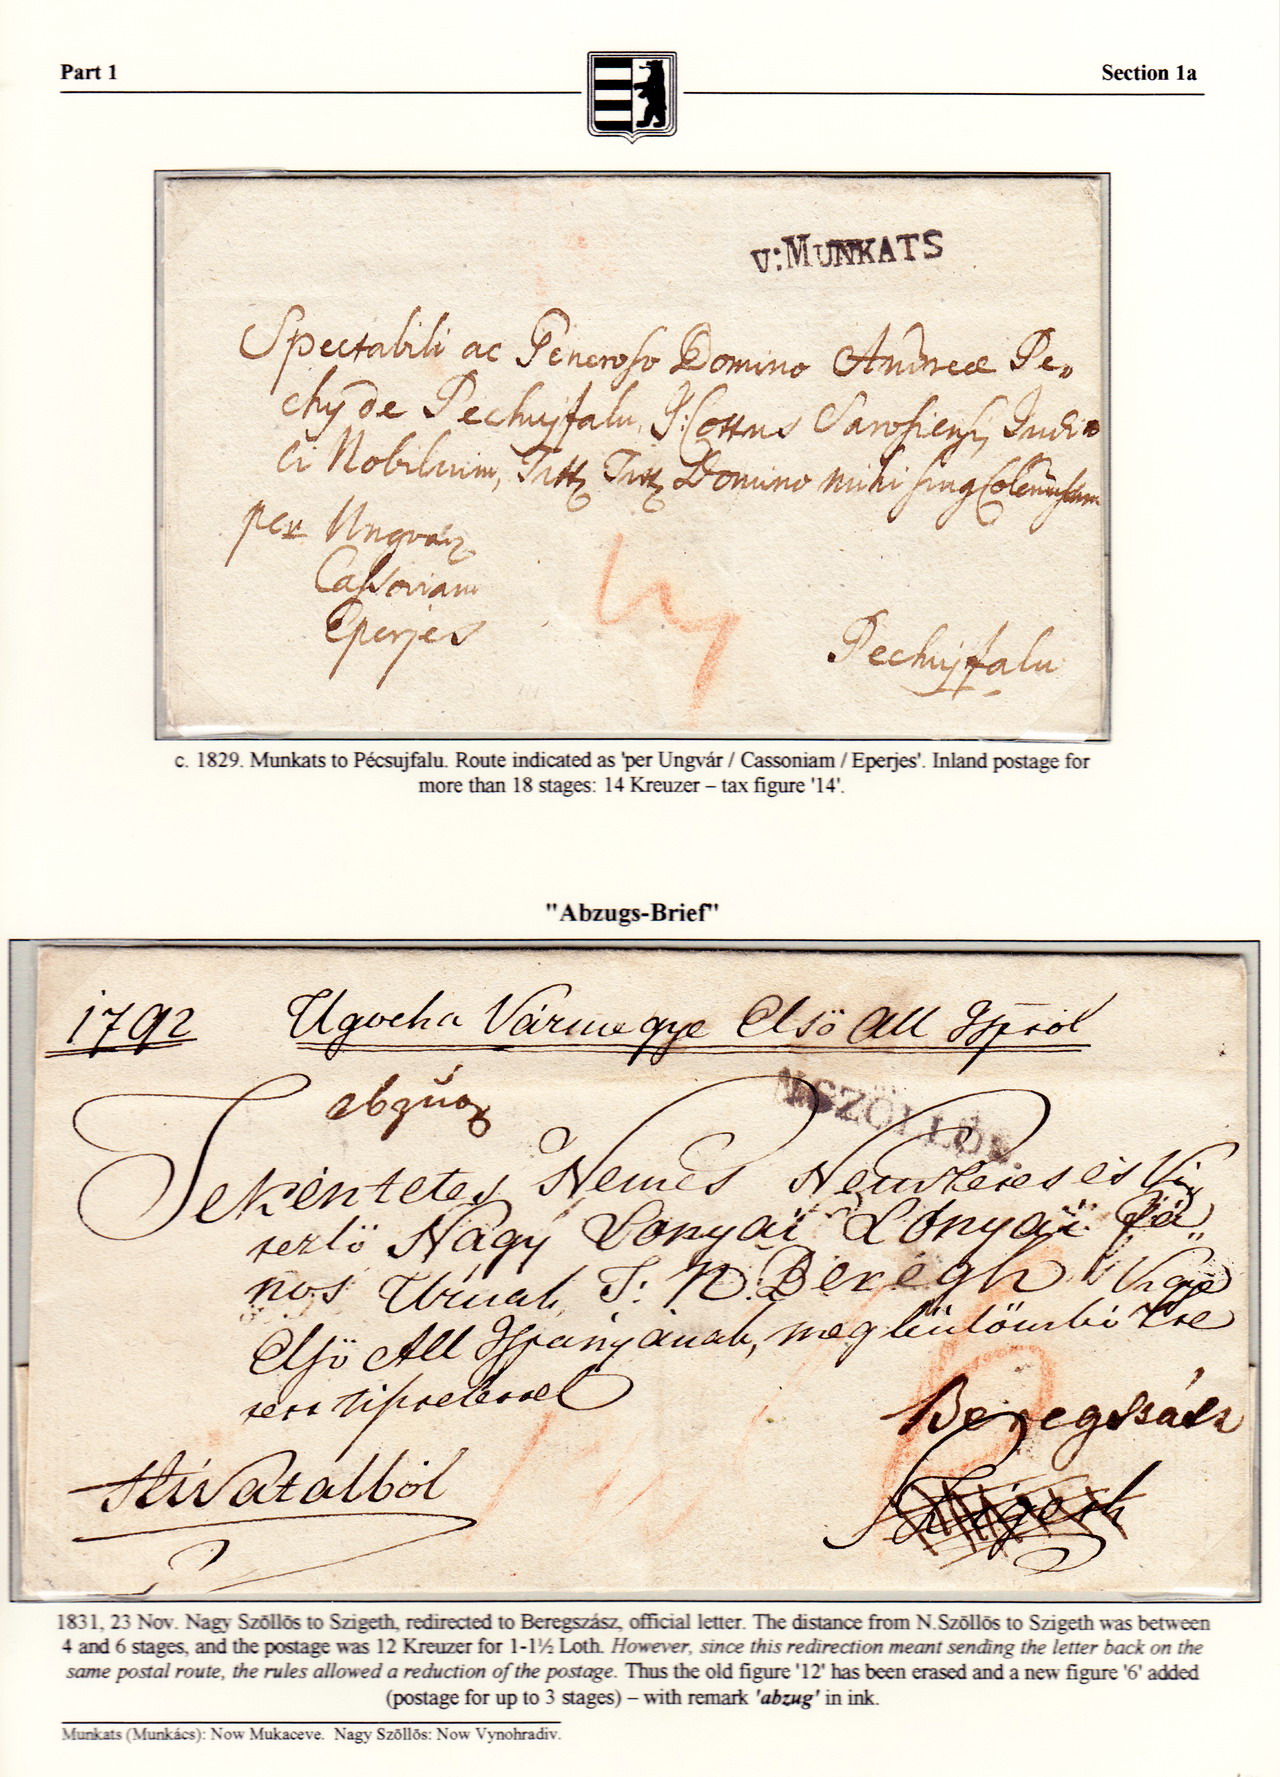 Part 1
Section 1a
V:MUNKATS
Spectabili ac Generoso Domino Andreæ Pe„
chy de Pechujfalu, J: Cottus Sarosiensis Judi„
ci Nobilium, Domino mihi
per Ungvár
Cassoviam
Eperjes
Pechujfalu
14
c. 1829. Munkats to Pécsujfalu. Route indicated as 'per Ungvár / Cassoniam / Eperjes'. Inland postage for
more than 18 stages: 14 Kreuzer – tax figure '14'.
"Abzugs-Brief"
1792 Ugocha Vármegye Első All Ispról
abzúg
N.SZÖLLÖS.
Tekéntetes Nemes Nemzetes és Vi„
tezlö Nagy Lonyai Lónyai Já„
nos Urnak, T: N: Beregh Vgye
Elsö All Ispánjának,
tisztelettel
Beregszász
Hivatalból
Szigeth
6
1831, 23 Nov. Nagy Szöllös to Szigeth, redirected to Beregszász, official letter. The distance from N.Szöllös to Szigeth was between
4 and 6 stages, and the postage was 12 Kreuzer for 1-1½ Loth. However, since this redirection meant sending the letter back on the
same postal route, the rules allowed a reduction of the postage. Thus the old figure '12' has been erased and a new figure '6' added
(postage for up to 3 stages) – with remark 'abzug' in ink.
Munkats (Munkács): Now Mukaceve. Nagy Szöllös: Now Vynohradiv.